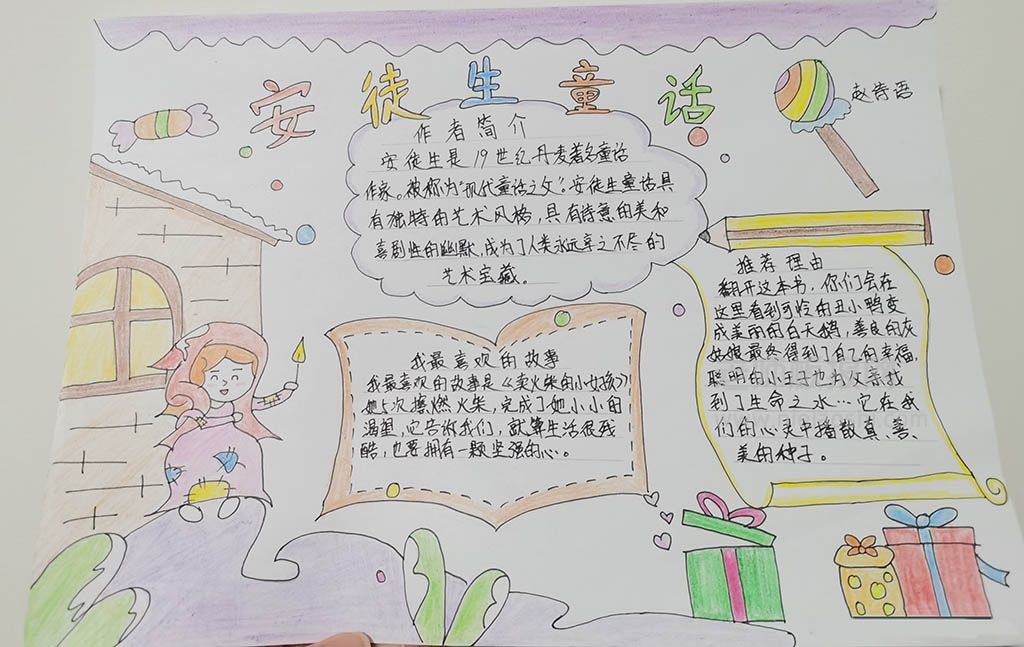 安徒生童话
赵诗语
作者简介
安徒生是19世纪丹麦著名童话
作家。被称为"现代童话之父"。安徒生童话具
有独特的艺术风格,具有诗意的美和
喜剧性的幽默,成为了人类永远享之不尽的
艺术宝藏。
我最喜欢的故事
我最喜欢的故事是《卖火柴的小女孩》
她5次擦燃火柴,完成了她小小的
渴望,它告诉我们,就算生活很残
酷,也要拥有一颗坚强的心。
推荐理由
翻开这本书,你们会在
这里看到可怜的丑小鸭变
成美丽的白天鹅,善良的灰
姑娘最终得到了自己的幸福,
聪明的小王子也为父亲找
到了生命之水…它在我
们的心灵中播散真、善、
美的种子。